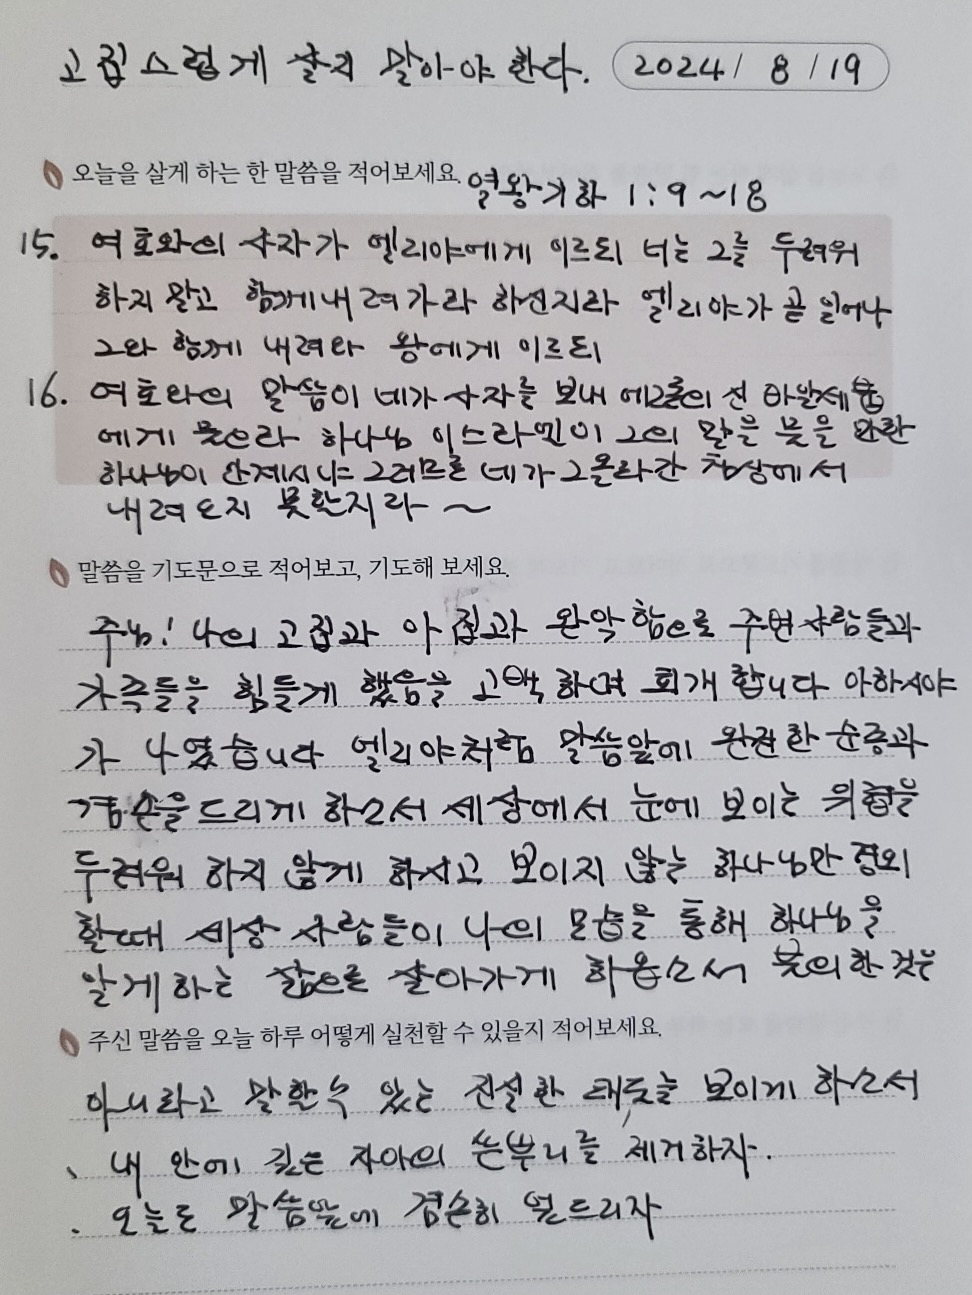 고집스럽게 살지 말아야 한다. 2024/ 8 /19
오늘을 살게 하는 한 말씀을 적어보세요. 열왕기하 1:9~18
15. 여호와의 사자가 엘리야에게 이르되 너는 그를 두려워
하지 말고 함께 내려가라 하신지라 엘리야가 곧 일어나
그와 함께 내려와 왕에게 이르되
16. 여호와의 말씀이 네가 사자를 보내 에그론의 신 바알세붑
에게 물으라 하나님 이스라엘이 그의 말을 묻을 만한
하나님이 안계시냐 그러므로 네가 그 올라간 침상에서
내려오지 못할지라~
말씀을 기도문으로 적어보고, 기도해 보세요.
주님! 나의 고집과 아집과 완악함으로 주변 사람들과
가족들을 힘들게 했음을 고백하며 회개합니다 아하시야
가 나였습니다 엘리야처럼 말씀앞에 완전한 순종과
겸손을 드리게 하소서 세상에서 눈에 보이는 위험을
두려워 하지 않게 하시고 보이지 않는 하나님만 경외
할때 세상 사람들이 나의 모습을 통해 하나님을
알게 하는 삶으로 살아가게 하옵소서 불의한 것은
주신 말씀을 오늘 하루 어떻게 실천할 수 있을지 적어보세요.
아니라고 말할수 있는 진실한 태도를 보이게 하소서
、내 안에 깊은 자아의 쓴뿌리를 제거하자.
. 오늘도 말씀앞에 겸손히 엎드리자